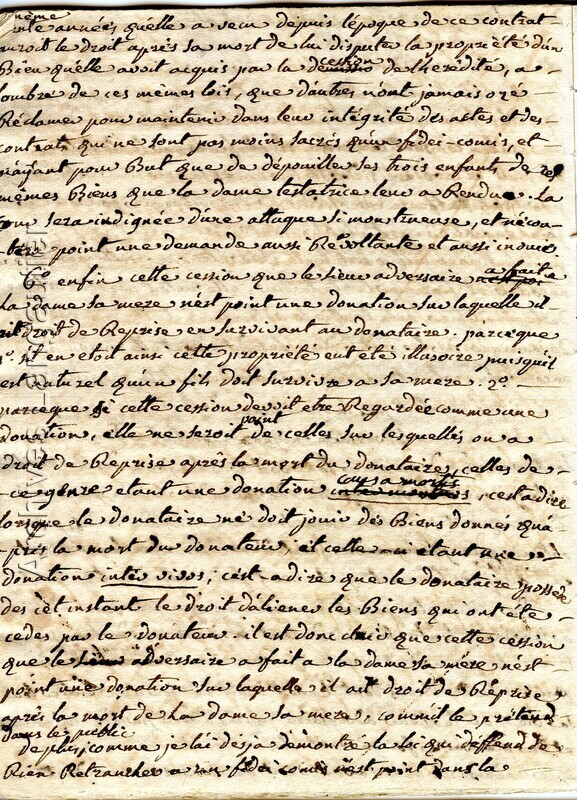 même
années quelle a vecu depuis lepoque de ce contrat
auroit le droit après sa mort de lui disputer la propriété d'un
Bien quelle avoit acquis par la cession de lheredité, a
lombre de ces mêmes lois, que dautres n'ont jamais osé
Réclamer pour maintenir dans leur intégrité des actes et des
contrats qui ne sont pas moins sacrés qu'un fidei-comis, et
n'ayant pour But que de dépouiller ses trois enfants de ces
mêmes Biens que la dame testatrice leur a Rendue. La
cour sera indignée d'une attaque si monstrueuse, et n'écou-
tera point une demande aussi Révoltante et aussi inouie
6° enfin cette cession que le sieur adversaire a faite
La dame sa mere n'est point une donation sur laquelle il
ait droit de Reprise en survivant au donataire. parceque
1° s'il en etoit ainsi cette propriété eut été illusoire puisqu'il
est naturel qu'un fils doit survivre a sa mere. 2°
parceque si cette cession devoit etre Regardée comme une
donation, elle ne seroit point de celles sur lesquelles on a
droit de Reprise après la mort du donataire, celles de
ce genre etant une donation causa mortis, c'est a dire
lorsque le donataire ne doit jouir des Biens donnés qu'a
près la mort du donateur, et celle-ci etant une
donation inter vivos, c'est-a dire que le donataire possede
des cet instant le droit d'aliener les Biens qui ont été
cedés par le donateur. il est donc clair que cette cession
que le sieur adversaire a fait a la dame sa mère n'est
point une donation sur laquelle il ait droit de Réprise
après la mort de La dame sa mere, comme il le prétend
dans le public
de plus, comme je lai desja démontré la loi qui deffend de
Rien Retrancher a un fidei comis n'est point dans la
Archives